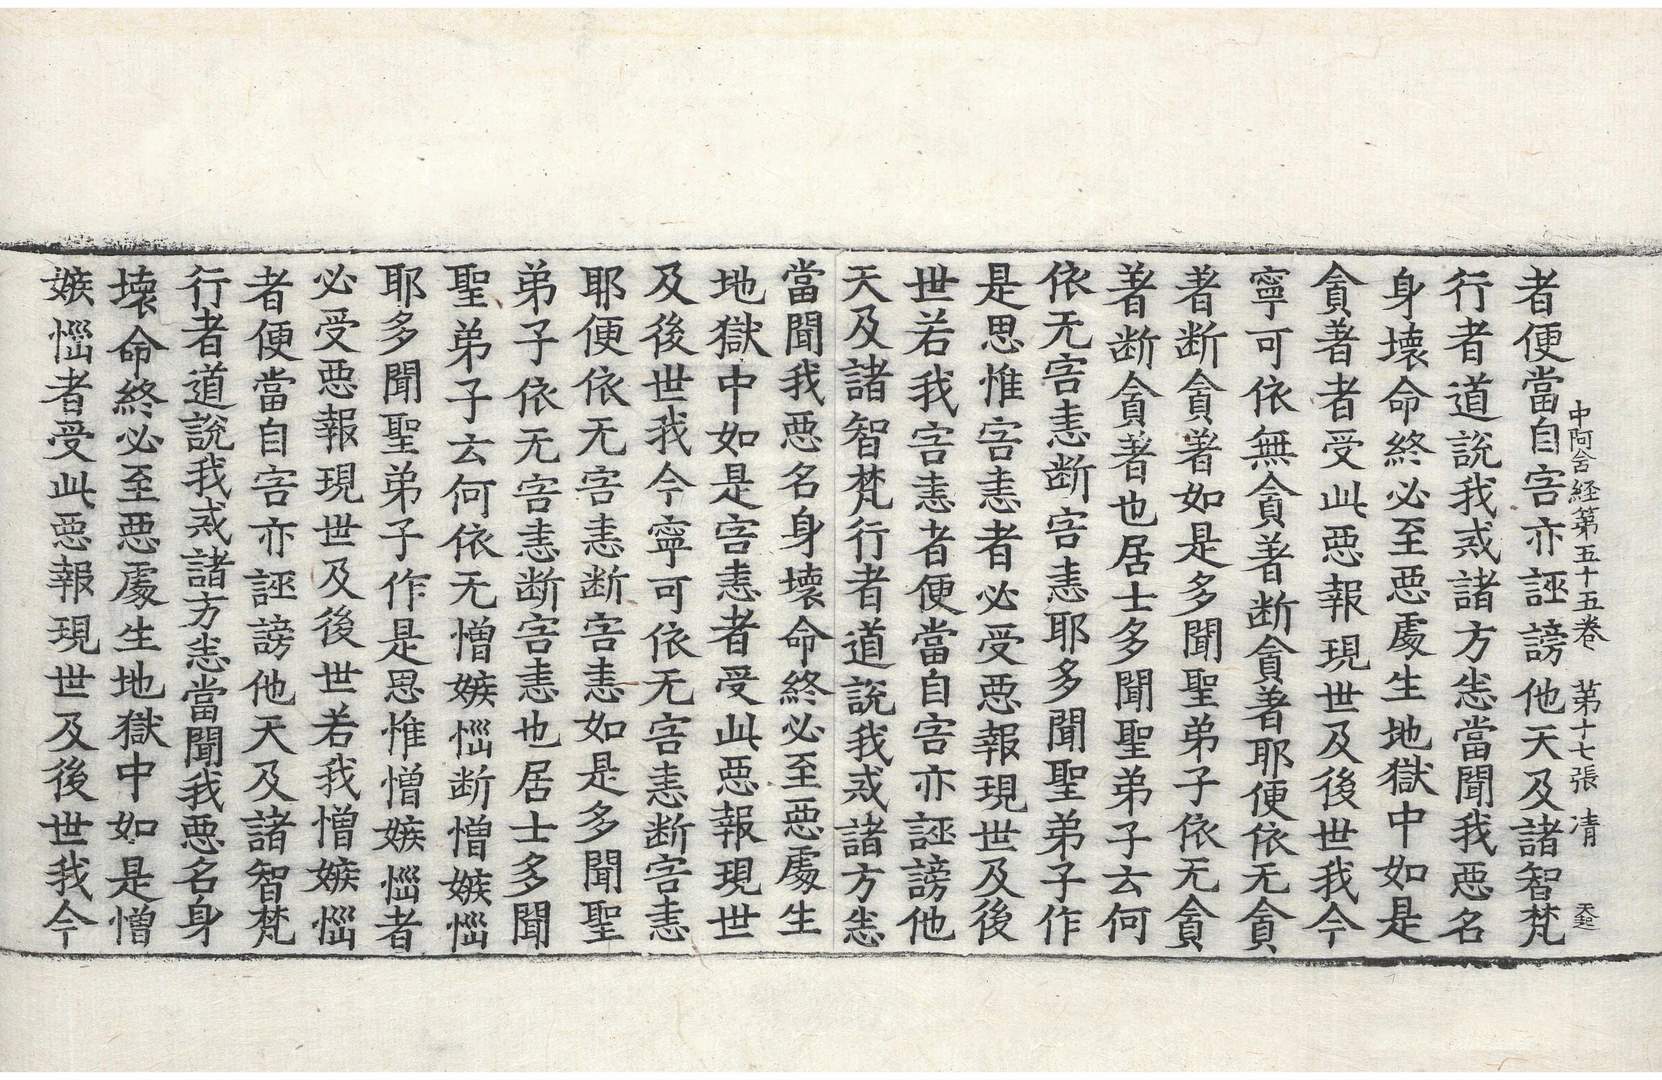 中阿含経第五十五卷　第十七張　清　天起
者便當自害亦誣謗他天及諸智梵
行者道說我戒諸方悉當聞我惡名
身壞命終必至惡處生地獄中如是
貪著者受此惡報現世及後世我今
寧可依無貪著断貪著耶便依无貪
著断貪著如是多聞聖弟子依无貪
著断貪著也居士多聞聖弟子云何
依无害恚断害恚耶多聞聖弟子作
是思惟害恚者必受惡報現世及後
世若我害恚者便當自害亦誣謗他
天及諸智梵行者道說我戒諸方悉
當聞我惡名身壞命終必至惡處生
地獄中如是害恚者受此惡報現世
及後世我今寧可依无害恚断害恚
耶便依无害恚断害恚如是多聞聖
弟子依无害恚断害恚也居士多聞
聖弟子云何依无憎嫉惱断憎嫉惱
耶多聞聖弟子作是思惟憎嫉惱者
必受惡報現世及後世若我憎嫉惱
者便當自害亦誣謗他天及諸智梵
行者道說我戒諸方悉當聞我惡名身
壞命終必至惡處生地獄中如是憎
嫉惱者受此惡報現世及後世我今